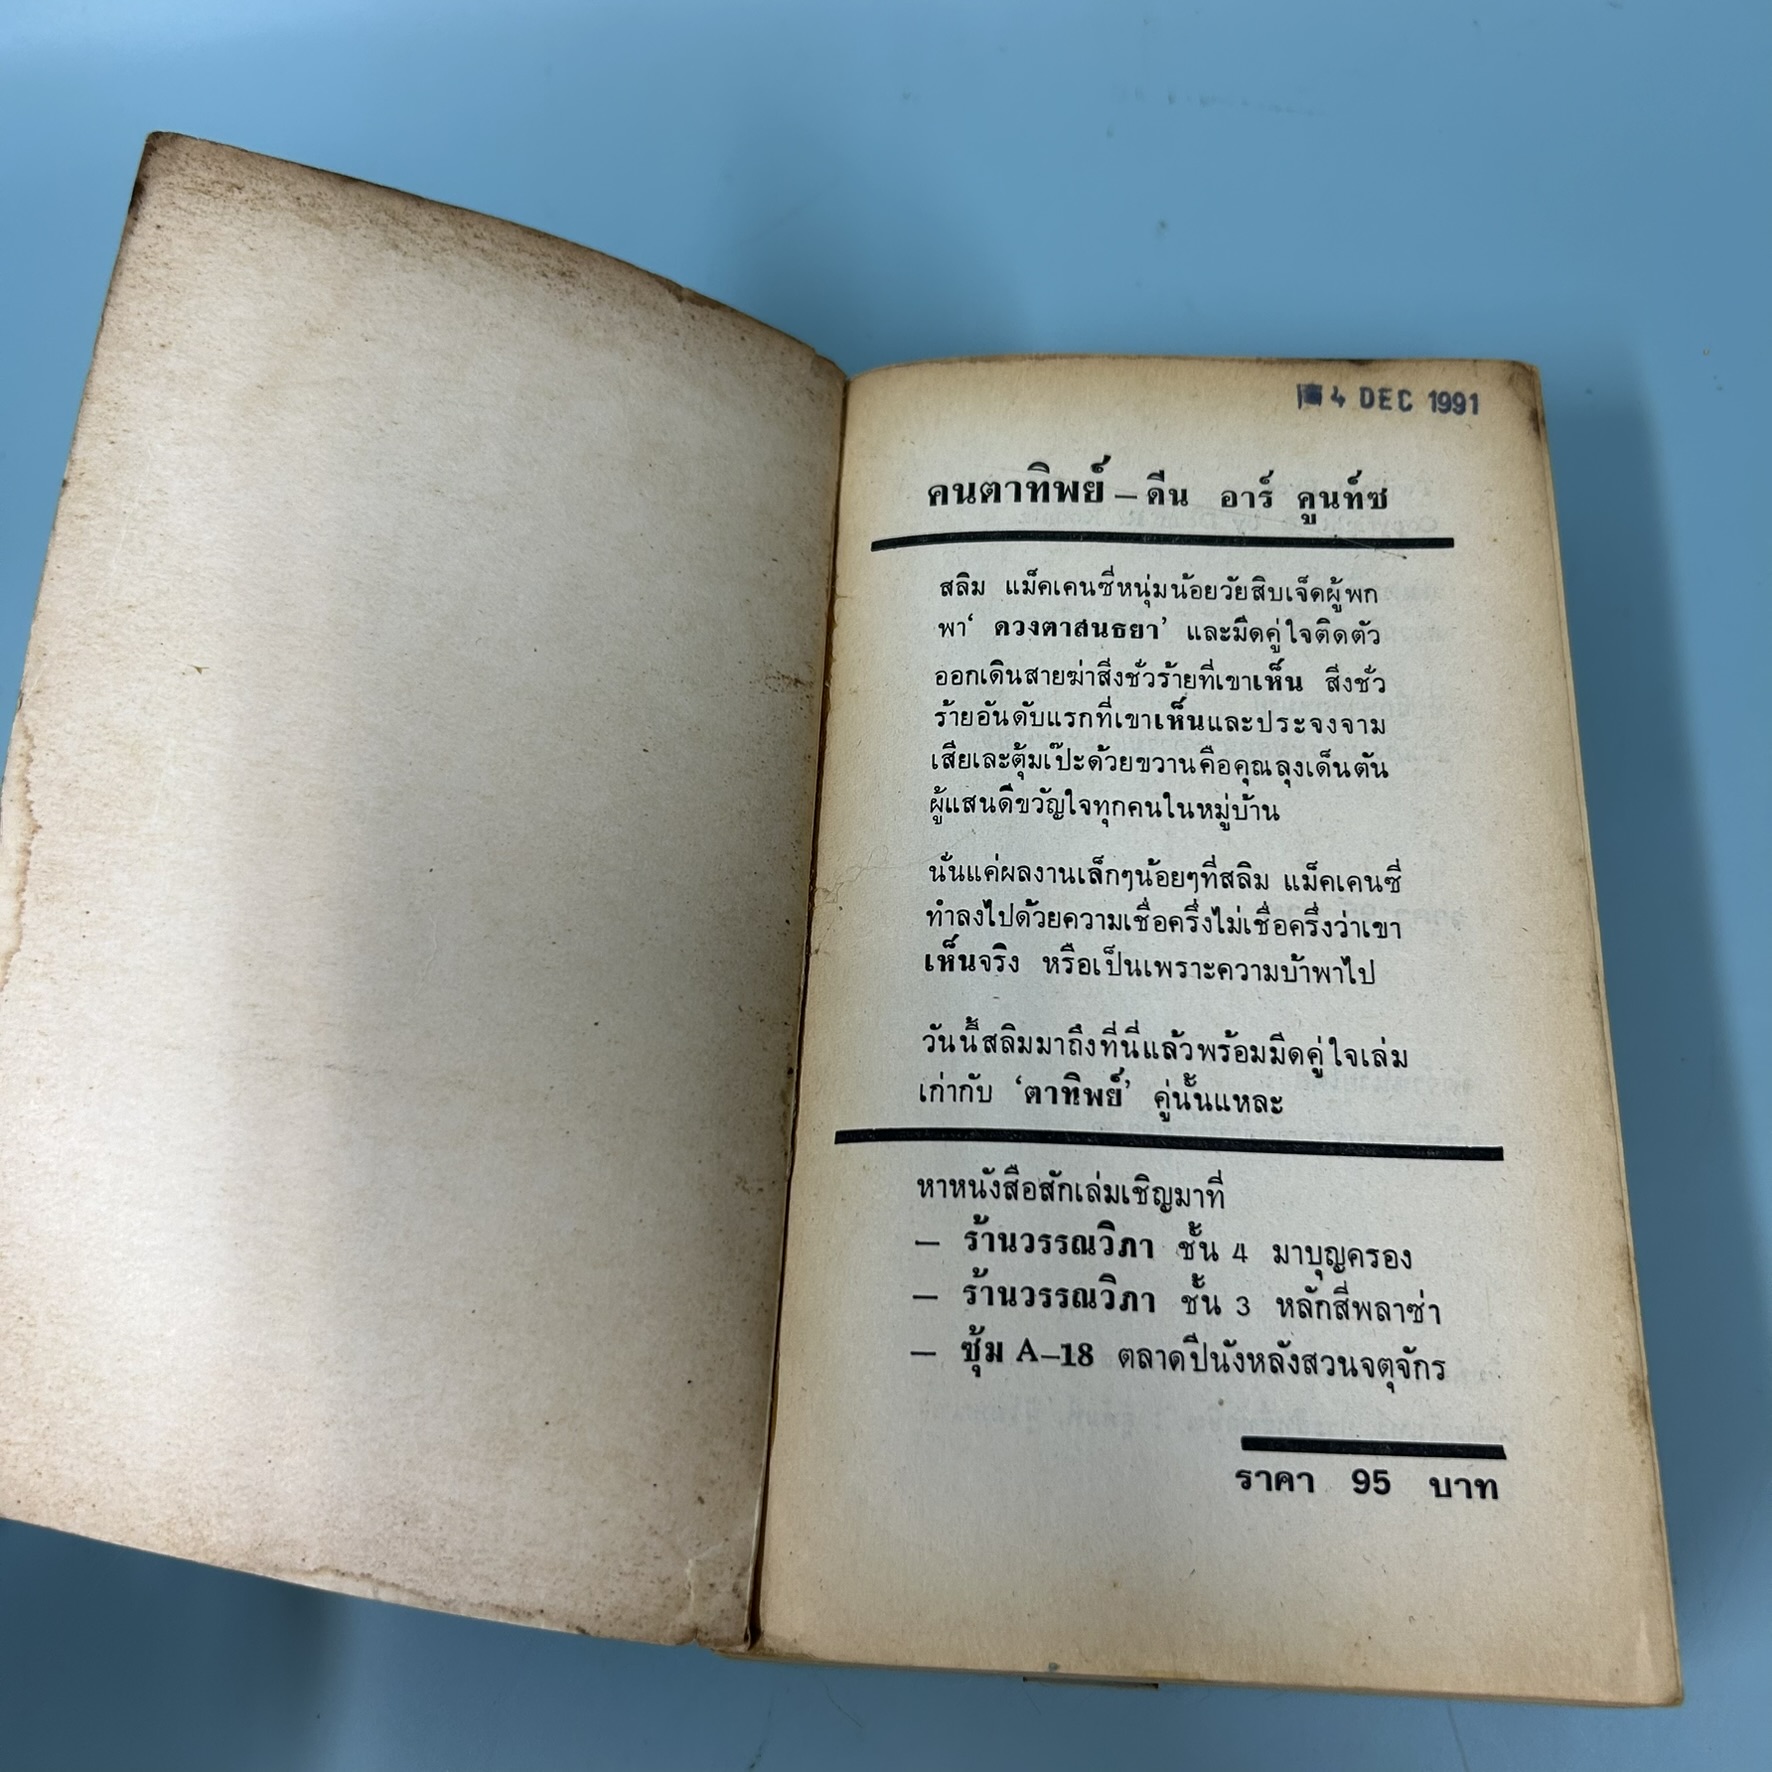 4 DEC 1991
คนตาทิพย์ – ดีน อาร์ คูนท์ซ
สลิม แม็คเคนซี่หนุ่มน้อยวัยสิบเจ็ดผู้พก
พา‘ ดวงตาสนธยา’ และมีดคู่ใจติดตัว
ออกเดินสายฆ่าสิ่งชั่วร้ายที่เขาเห็น สิ่งชั่ว
ร้ายอันดับแรกที่เขาเห็นและประจงจาม
เสียเละตุ้มเป๊ะด้วยขวานคือคุณลุงเด็นตัน
ผู้แสนดีขวัญใจทุกคนในหมู่บ้าน
นั่นแค่ผลงานเล็กๆน้อยๆที่สลิม แม็คเคนซี่
ทำลงไปด้วยความเชื่อครึ่งไม่เชื่อครึ่งว่าเขา
เห็นจริง หรือเป็นเพราะความบ้าพาไป
วันนี้สลิมมาถึงที่นี่แล้วพร้อมมีดคู่ใจเล่ม
เก่ากับ ‘ตาทิพย์’ คู่นั้นแหละ
หาหนังสือสักเล่มเชิญมาที่
– ร้านวรรณวิภา ชั้น 4 มาบุญครอง
– ร้านวรรณวิภา ชั้น 3 หลักสี่พลาซ่า
– ซุ้ม A–18 ตลาดปีนังหลังสวนจตุจักร
ราคา 95 บาท